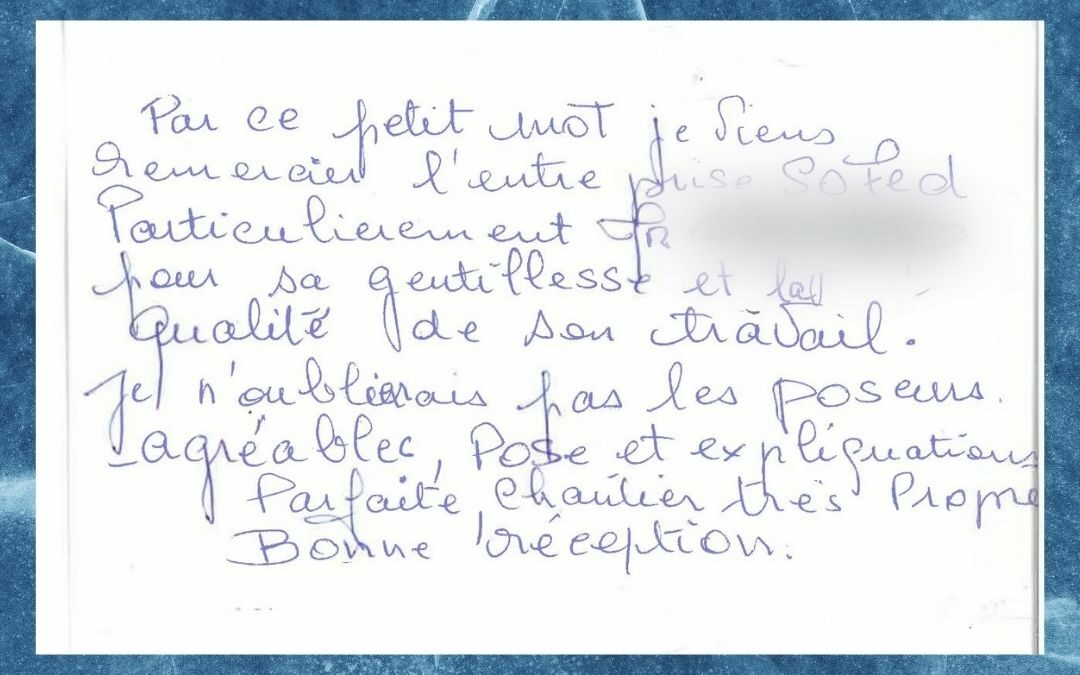 Par ce petit mot je viens
remercier l'entreprise Sofed
Particulierement Mr
pour sa gentillesse et la
qualité de son travail.
Je n'oublierais pas les poseurs.
agréables, Pose et expliquations
Parfaite, Chantier très Propre
Bonne réception.